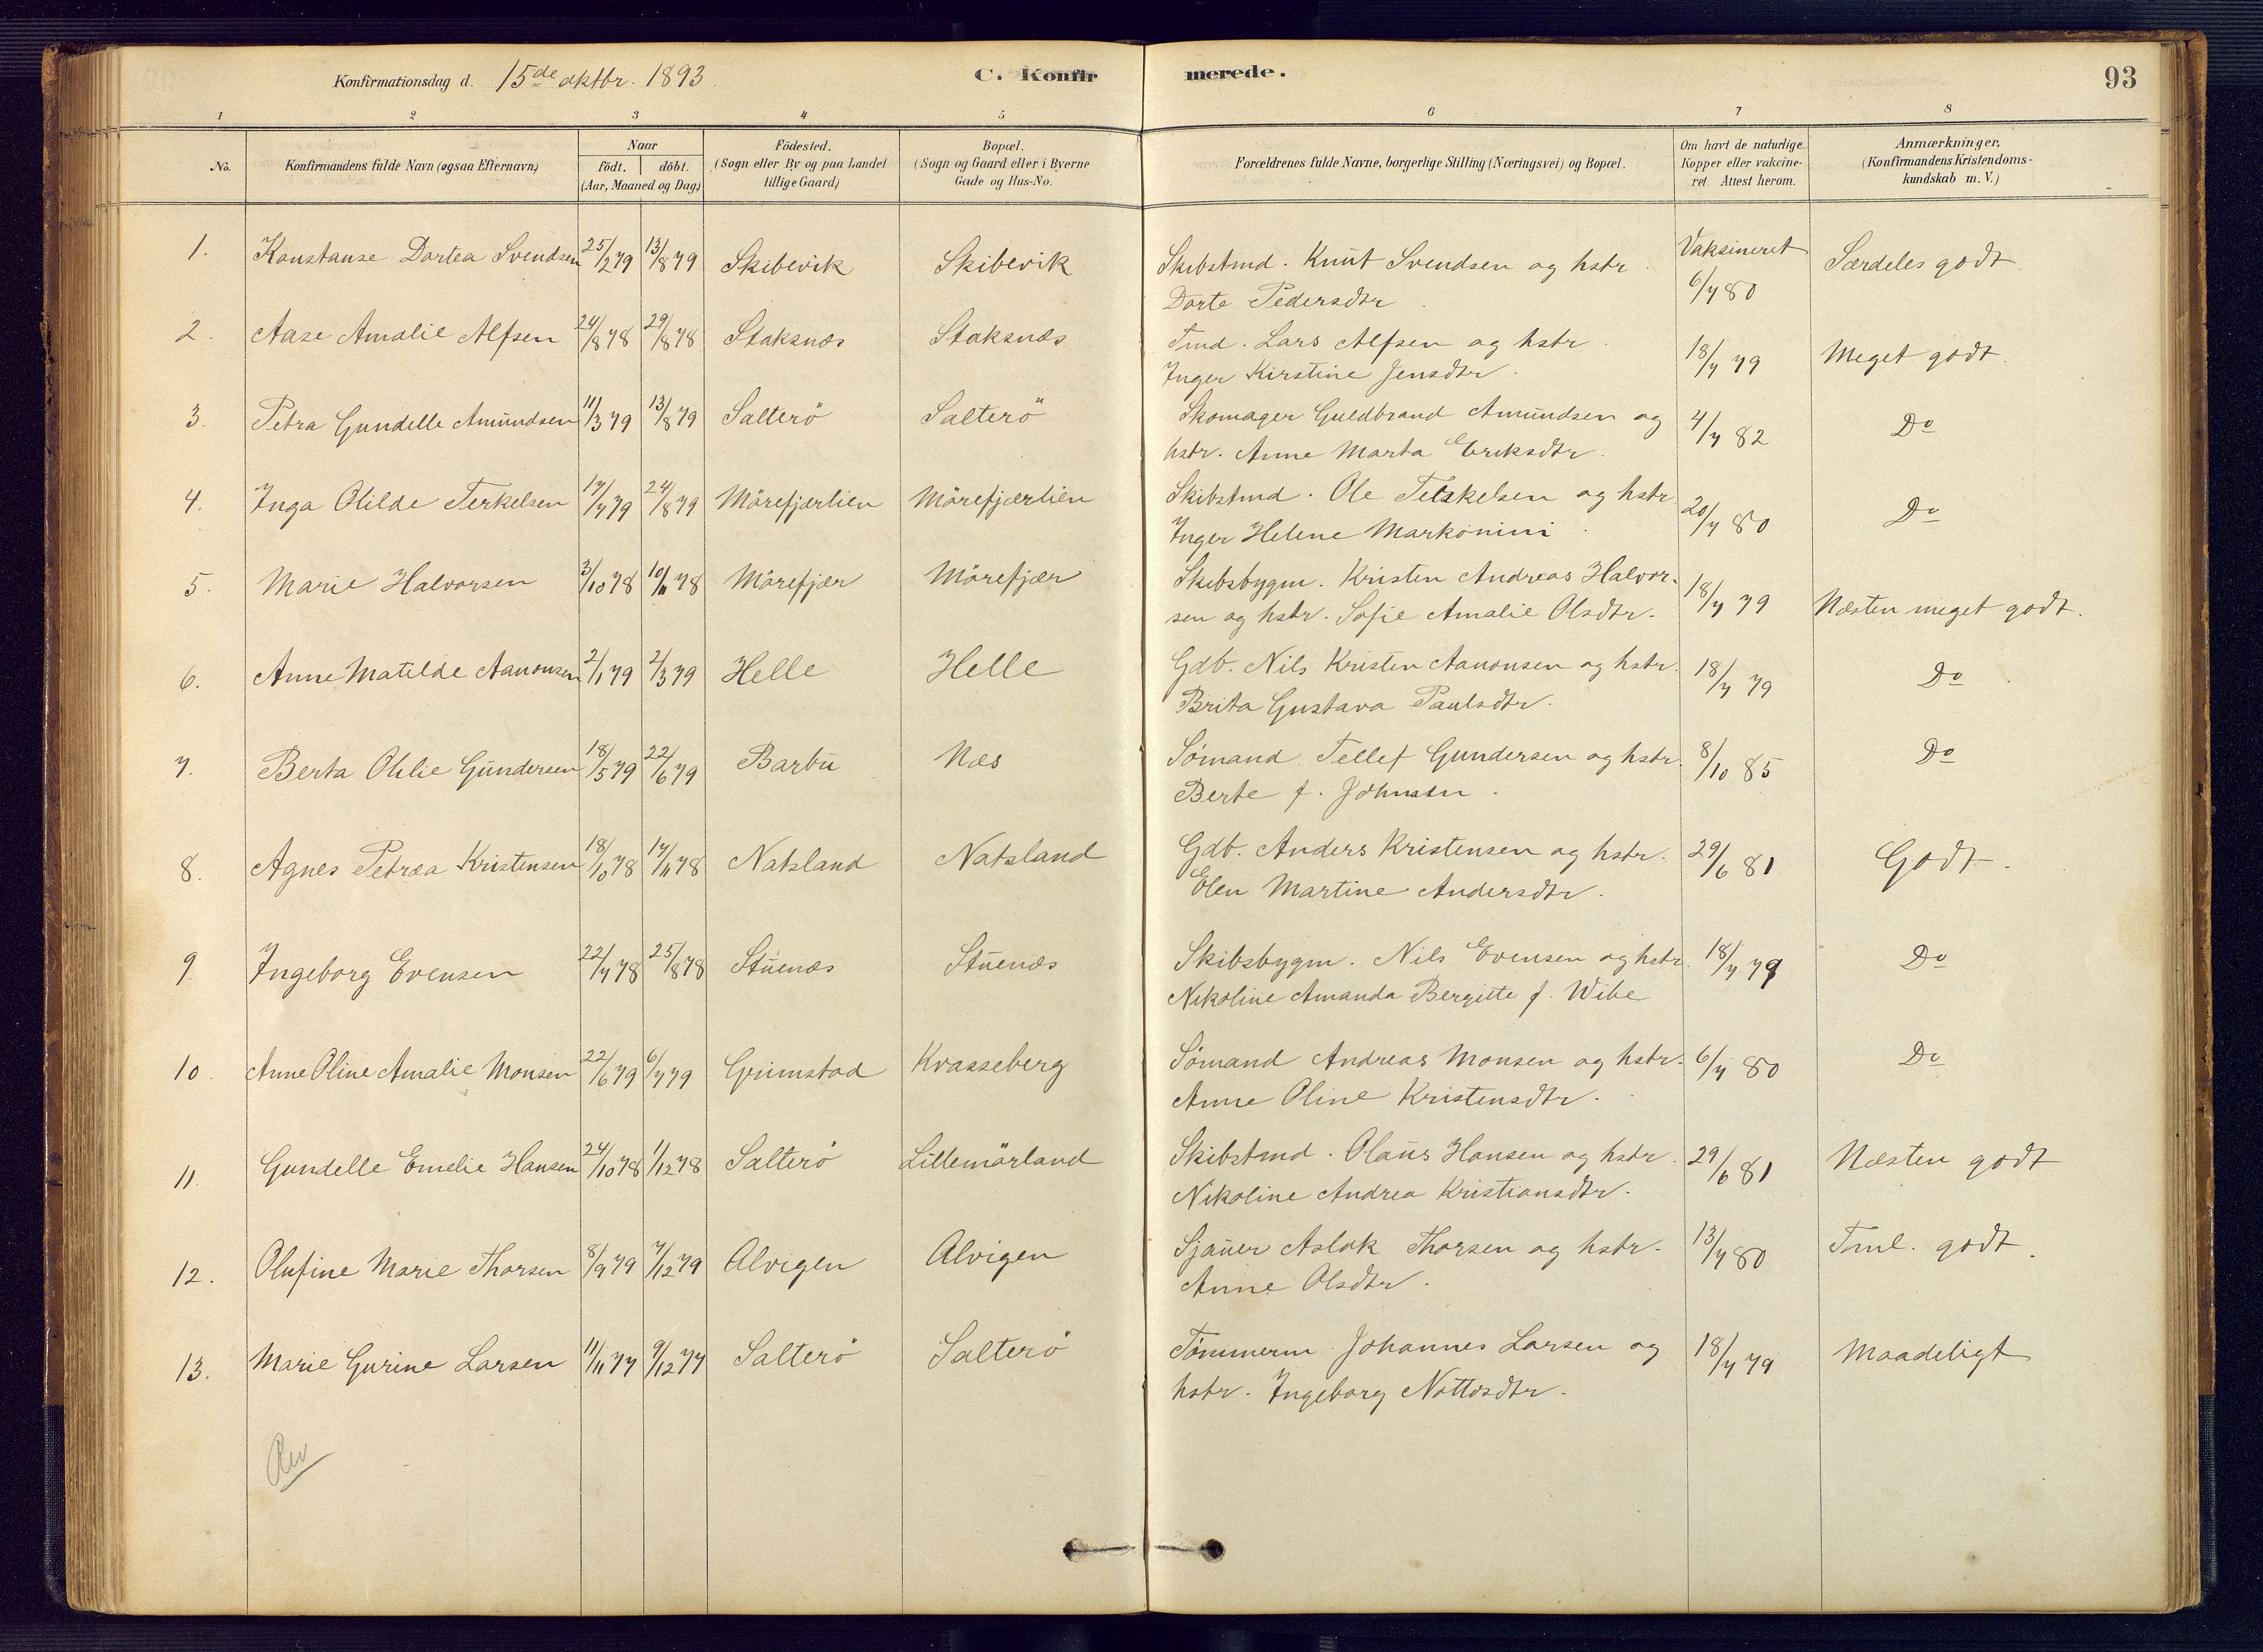 Konfirmationsdag d. 15de oktbr. 1893.
C. Konfir merede.
93
1 2 3 4 5 6 7 8
No.
Konfirmandens fulde Navn (ogsaa Efternavn)
Naar
födt. döbt.
(Aar, Maaned og Dag)
Födested.
(Sogn eller By og paa Landet
tillige Gaard)
Bopæl.
(Sogn og Gaard eller i Byerne
Gade og Hus-No.
Forældrenes fulde Navne, borgerlige Stilling (Næringsvei) og Bopæl.
Om havt de naturlige
Kopper eller vakcine-
ret. Attest herom.
Anmærkninger.
(Konfirmandens Kristendoms-
kundskab m. V.)
1. Konstanse Dortea Svendsen 25/2 79 13/8 79 Skibevik Skibevik Skibstmd. Knut Svendsen og hstr. Vaksineret Særdeles godt
Dorte Pedersdtr. 6/7 80
2. Aase Amalie Alfsen 24/8 78 29/8 78 Staksnæs Staksnæs Tmd. Lars Alfsen og hstr. 18/7 79 Meget godt.
Inger Kirstine Jensdtr.
3. Petra Gundelle Amundsen 11/3 79 13/8 79 Salterö Salterö Skomager Guldbrand Amundsen og 4/7 82 Do
hstr. Anne Marta Eriksdtr.
4. Inga Olilde Terkelsen 17/7 79 24/8 79 Mörefjærlien Mörefjærlien Skibstmd. Ole Telskelsen og hstr. 20/7 80 Do
Inger Helene Markonini
5. Marie Halvorsen 3/10 78 10/11 78 Mörefjær Mörefjær Skibsbygm. Kristen Andreas Halvor- 18/7 79 Næsten meget godt.
sen og hstr. Sofie Amalie Olsdtr.
6. Anne Matilde Aanonsen 2/1 79 2/3 79 Helle Helle Gdb. Nils Kristen Aanonsen og hstr. 18/7 79 Do
Brita Gustava Paulsdtr.
7. Berta Ohlie Gundersen 18/5 79 22/6 79 Barbu Næs Sömand Tellef Gundersen og hstr. 8/10 85 Do
Berte f. Johnsen.
8. Agnes Petræa Kristensen 18/10 78 17/11 78 Natsland Natsland Gdb. Anders Kristensen og hstr. 29/6 81 Godt.
Elen Martine Andersdtr.
9. Ingeborg Evensen 22/7 78 25/8 78 Stuenæs Stuenæs Skibsbygm. Nils Evensen og hstr. 18/7 79 Do
Nikoline Amanda Bergitte f. Wibe
10. Anne Oline Amalie Monsen 22/6 79 6/7 79 Grimstad Krasseberg Sömand Andreas Monsen og hstr. 6/7 80 Do
Anne Oline Kristensdtr.
11. Gundelle Emelie Hansen 24/10 78 1/12 78 Salterö Lillemörland Skibstmd. Olaus Hansen og hstr. 29/6 81 Næsten godt
Nikoline Andrea Kristiansdtr.
12. Olufine Marie Thorsen 8/9 79 7/12 79 Alvigen Alvigen Sjauer Aslak Thorsen og hstr. 13/7 80 Tml. godt.
Anne Olsdtr.
13. Marie Gurine Larsen 11/11 77 9/12 77 Salterö Salterö Tömmerm. Johannes Larsen og 18/7 79 Maadeligt
hstr. Ingeborg Nottosdtr.